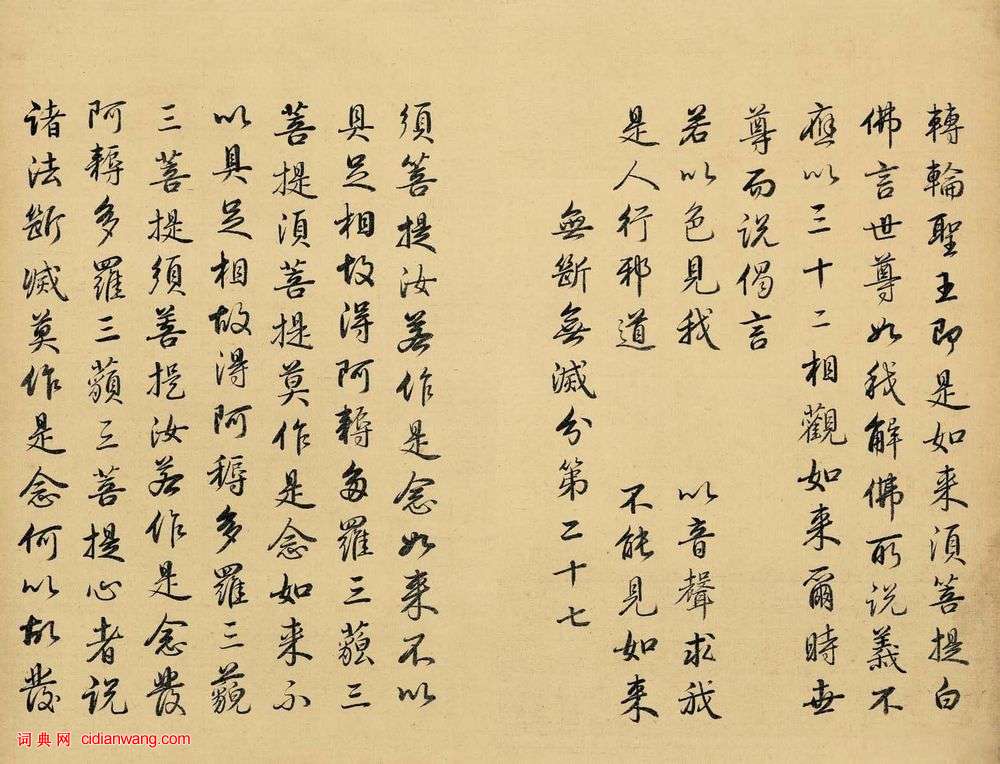 轉輪聖王即是如来須菩提白
佛言世尊如我解佛所说義不
應以三十二相觀如来爾時世
尊而说偈言
若以色見我 以音聲求我
是人行邪道 不能見如来
無斷無滅分第二十七
須菩提汝若作是念如来不以
具足相故得阿耨多羅三藐三
菩提須菩提莫作是念如来不
以具足相故得阿耨多羅三藐
三菩提須菩提汝若作是念發
阿耨多羅三藐三菩提心者说
诸法斷滅莫作是念何以故發
词典网 cidianwang.com